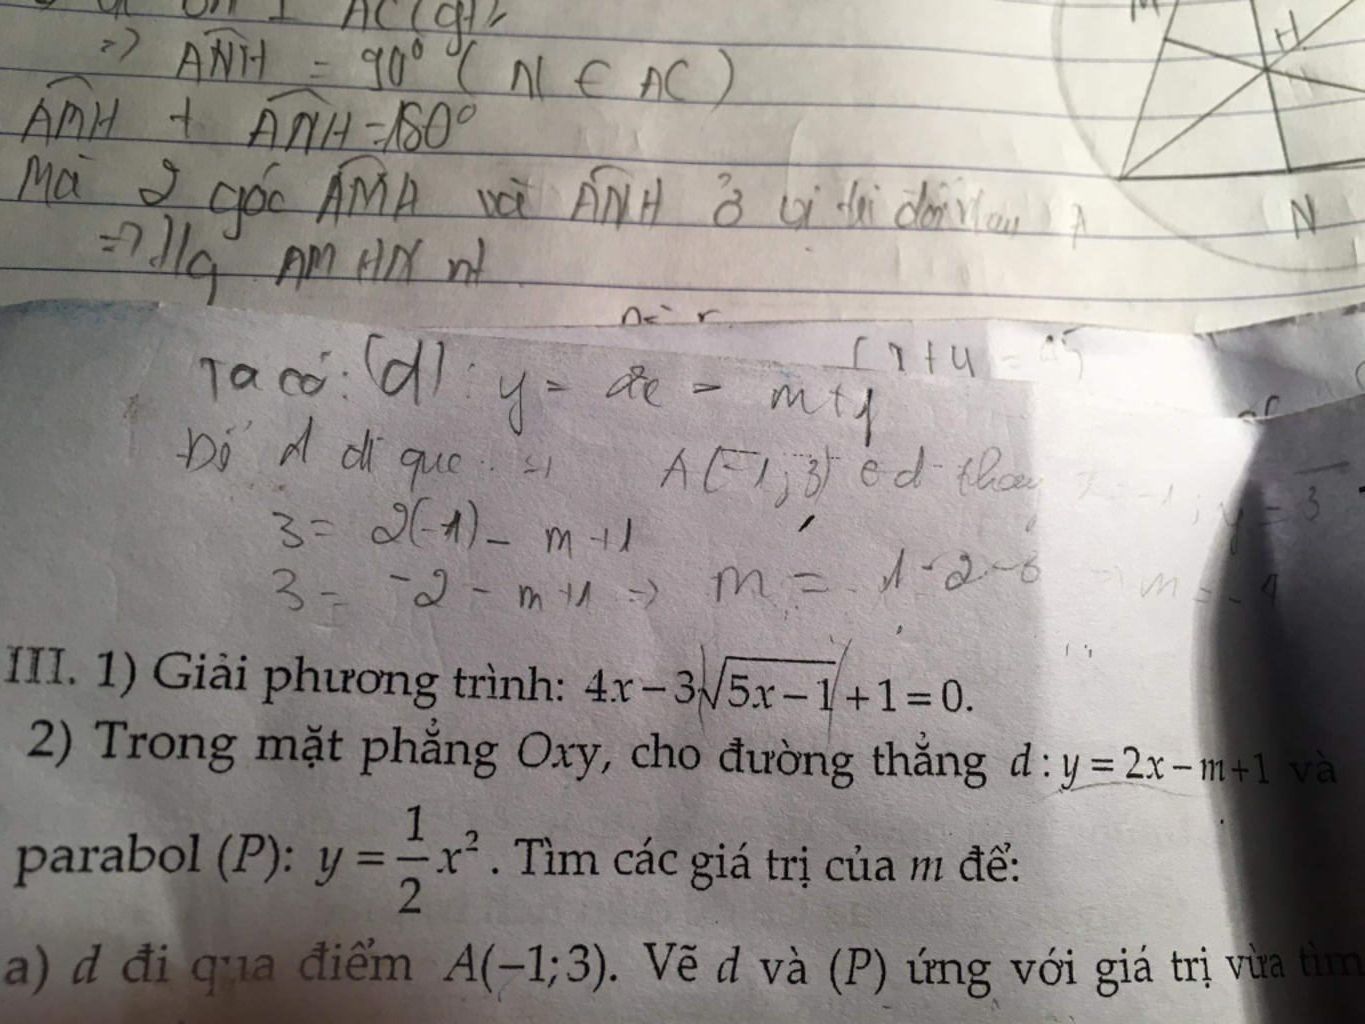 ⊥ AC (gt)
=> ANH = 90° ( N ∈ AC )
AMH + ANH = 180°
Mà 2 góc AMH và ANH ở vị trí đối nhau
M
H
A
N
=> tg AMHN nt
[ x + y =
Ta có: (d): y = 2x = m+1
Do d đi qua A(-1; 3) ∈ d thay x = -1; y = 3
3 = 2(-1) - m +1
3 = -2 - m +1 => m = 1-2-3 => m = -4
III. 1) Giải phương trình: 4x − 3√(5x − 1) + 1 = 0.
2) Trong mặt phẳng Oxy, cho đường thẳng d : y = 2x − m+1 và
parabol (P): y = 1/2 x². Tìm các giá trị của m để:
a) d đi qua điểm A(−1; 3). Vẽ d và (P) ứng với giá trị vừa tìm